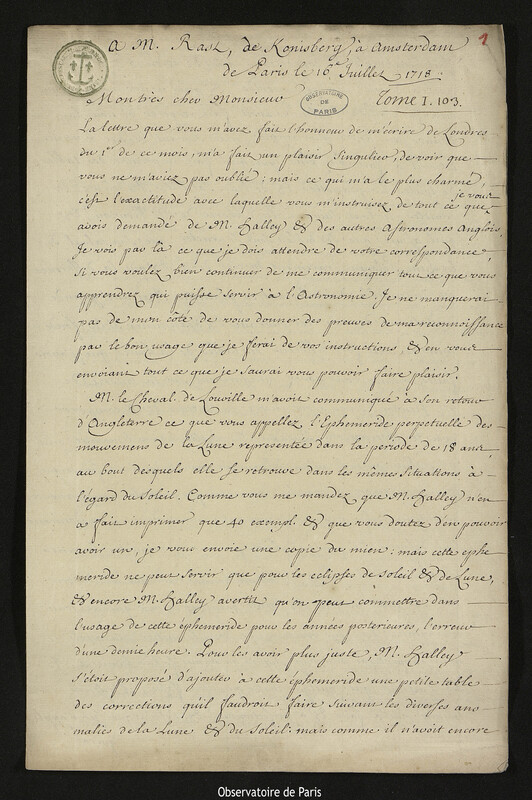 1
A M. Rast, de Konisberg, à Amsterdam
de Paris le 16.e Juillet 1718:
Mon tres cher Monsieur
OBSERVATOIRE DE PARIS
Tome I. 103.
La lettre que vous m'avez fait l'honneur de m'écrire de Londres
du 1.er de ce mois, m'a fait un plaisir singulier, de voir que
vous ne m'aviez pas oublié: mais ce qui m'a le plus charmé,
c'est l'exactitude avec laquelle vous m'instruisez de tout ce que je vous
avois demandé de M. Halley & des autres Astronomes Anglois.
Je vois par là ce que je dois attendre de votre correspondance,
si vous voulez bien continuer de me communiquer tout ce que vous
apprendrez qui puisse servir à l'Astronomie. Je ne manquerai
pas de mon côté de vous donner des preuves de ma reconnoissance
par le bon usage que je ferai de vos instructions, & en vous
envoiant tout ce que je saurai vous pouvoir faire plaisir.
M. le Cheval. de Louville m'avoit communiqué à son retour
d'Angleterre ce que vous appellez, l'Ephemeride perpetuelle des
mouvemens de la Lune representée dans la periode de 18 ans,
au bout desquels elle se retrouve dans les mêmes situations à
l'égard du Soleil. Comme vous me mandez que M. Halley n'en
a fait imprimer que 40 exempl. & que vous doutez d'en pouvoir
avoir un, je vous envoie une copie du mien: mais cette ephe
meride ne peut servir que pour les eclipses de Soleil & de Lune,
& encore M. Halley avertit qu'on peut commettre dans
l'usage de cette éphemeride pour les années posterieures, l'erreur
d'une demie heure. Pour les avoir plus juste, M. Halley
s'étoit proposé d'ajouter à cette éphemeride une petite table
des corrections qu'il faudroit faire suivant les diverses ano
malies de la Lune & du Soleil: mais comme il n'avoit encore
Observatoire de Paris